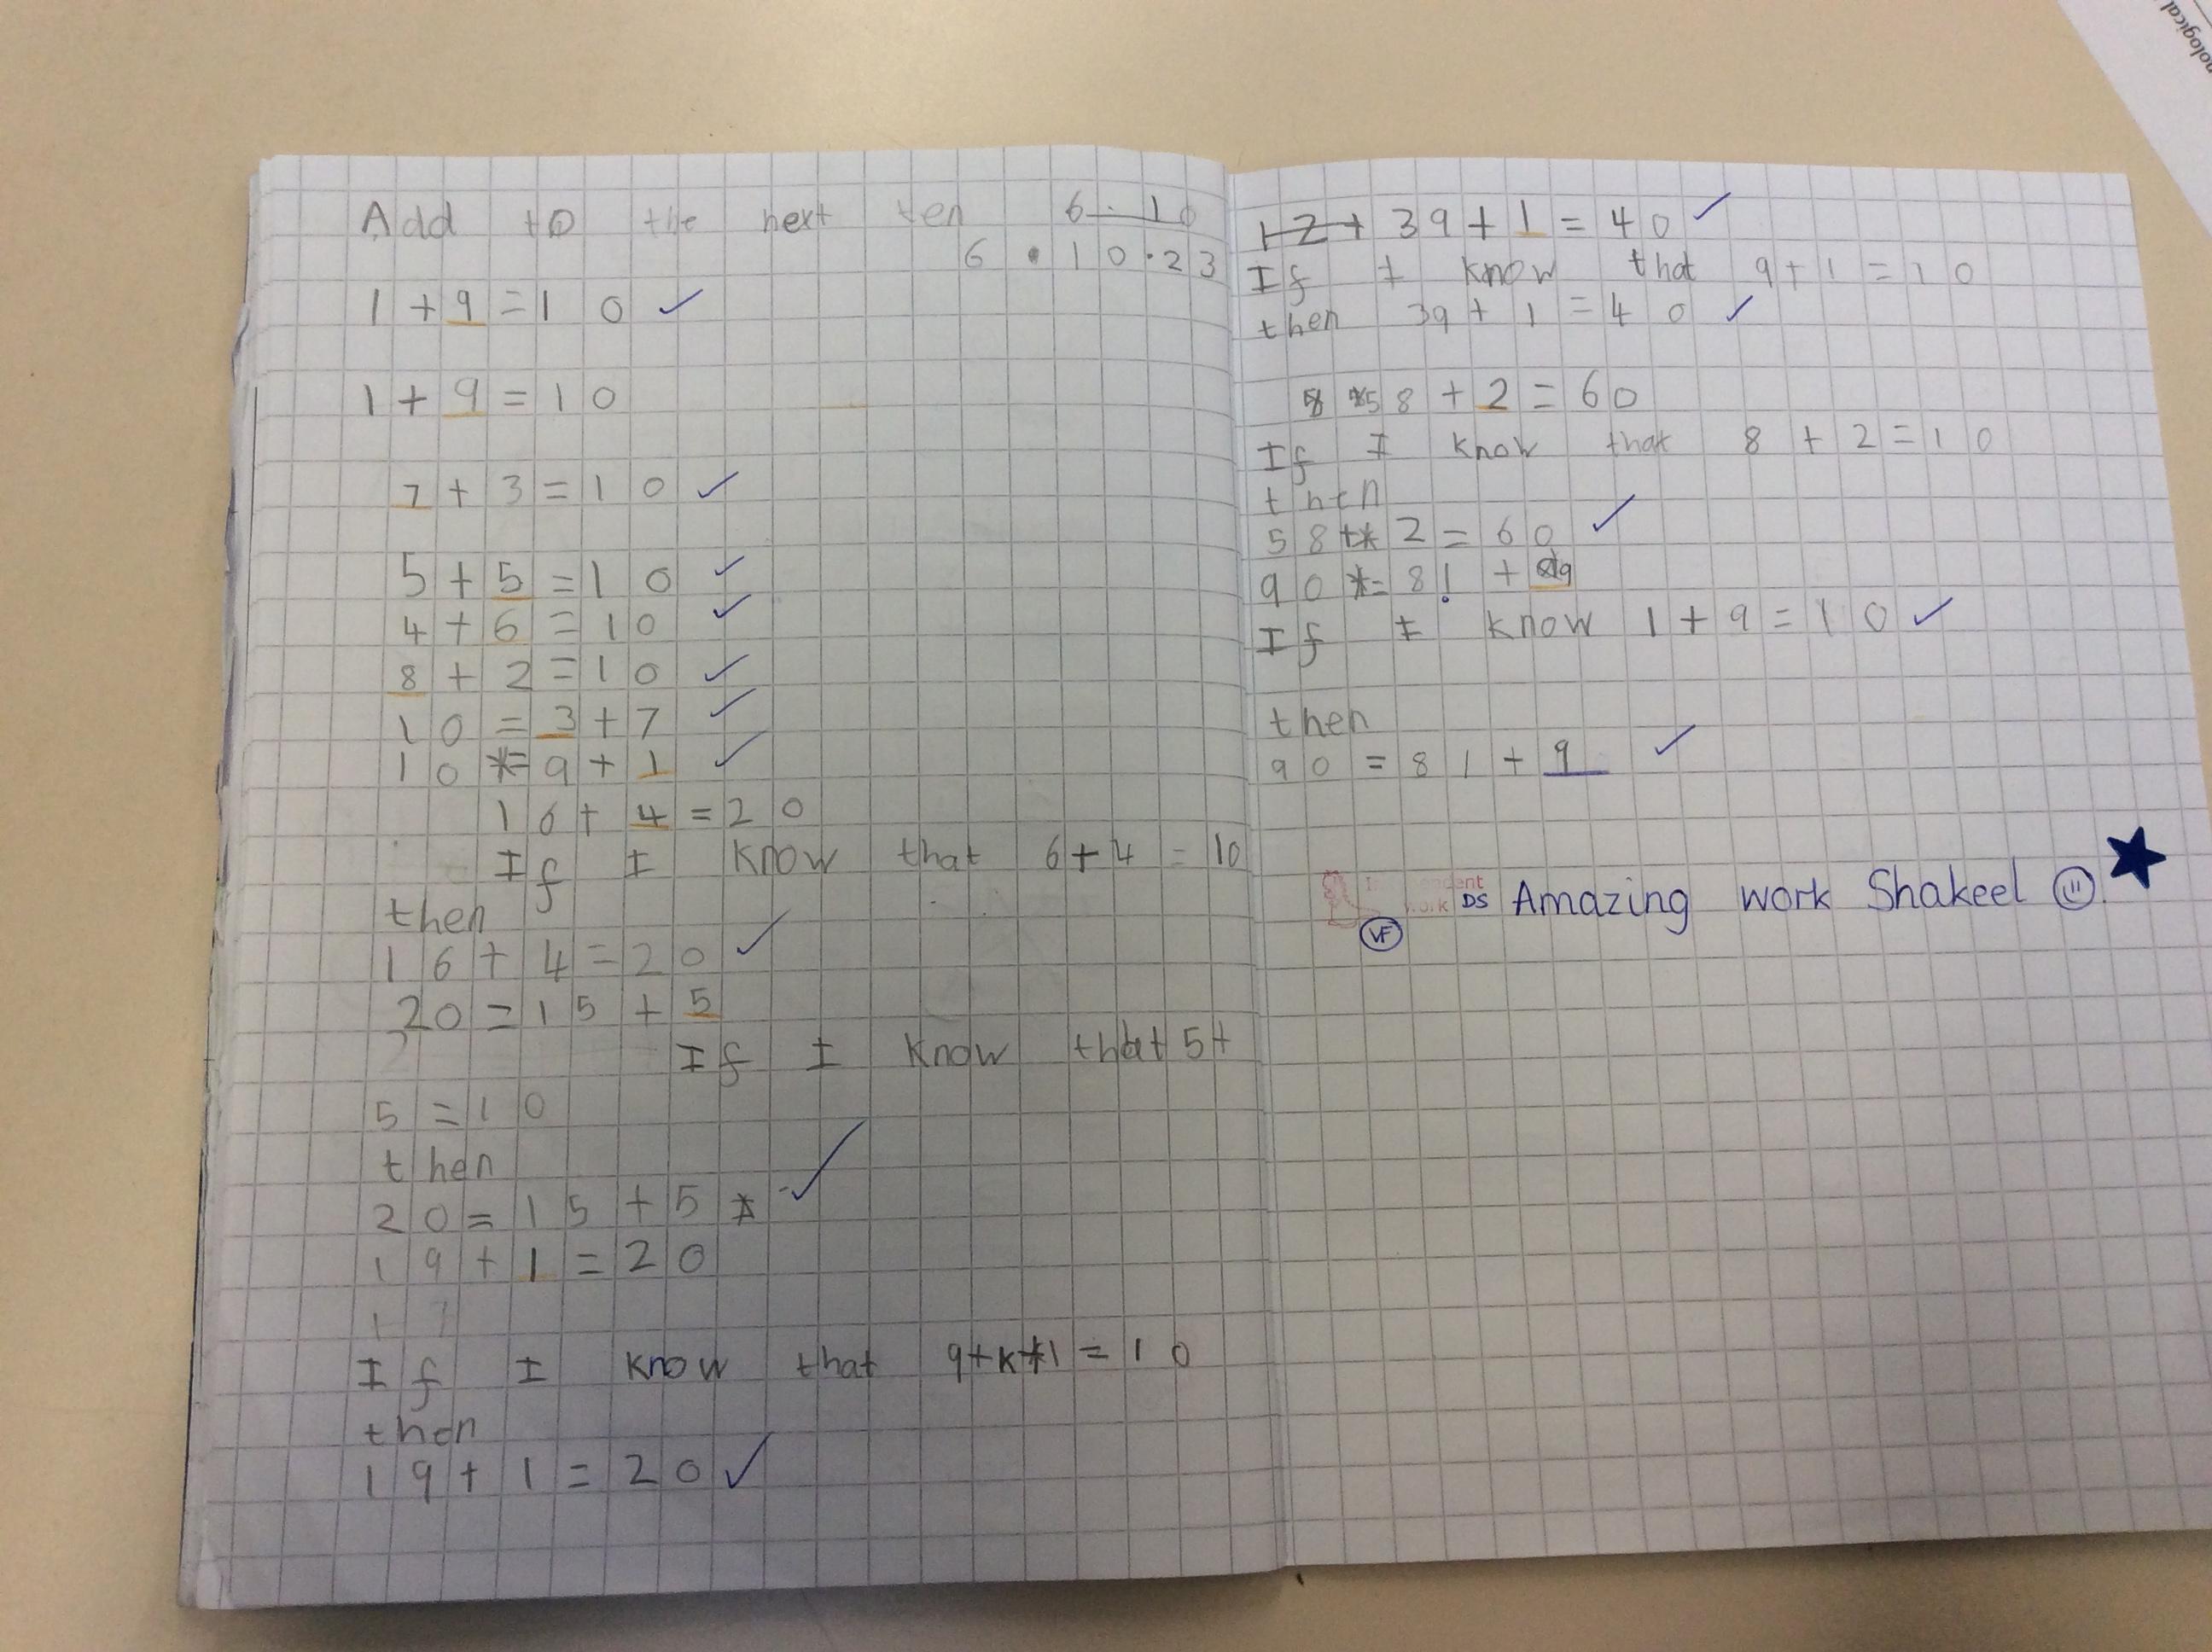 Add to the next ten 6.10
6.10.23
1+9=10
1+9=10
7+3=10
5+5=10
4+6=10
8+2=10
10=3+7
10=9+1
16+4=20
If I know that 6+4=10
then
16+4=20
20=15+5
If I know that 5+
5=10
then
20=15+5
19+1=20
17
If I know that 9+1=10
then
19+1=20
12+ 39+1=40
If I know that 9+1=10
then 39+1=40
58+2=60
If I know that 8+2=10
then
58+2=60
90=81+9
If I know 1+9=10
then
90=81+9
DS Amazing work Shakeel
VF
ological